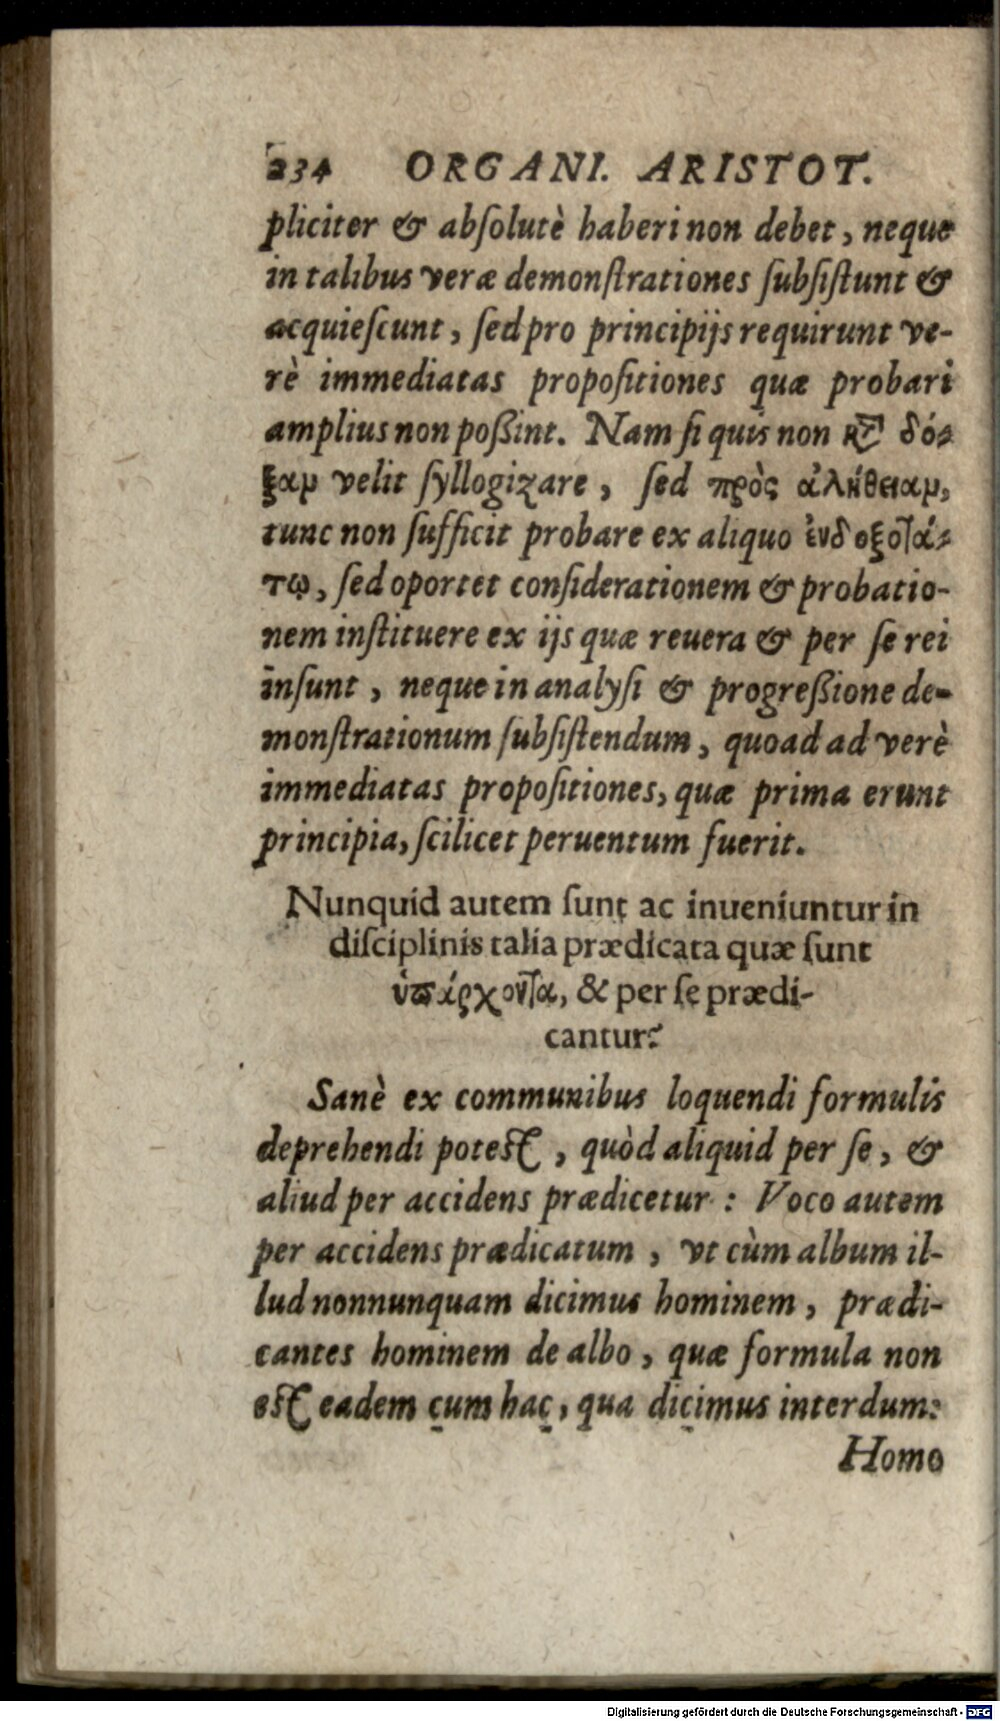 234 ORGANI. ARISTOT.
pliciter & abſolutè haberi non debet, neque
in talibus veræ demonſtrationes ſubſiſtunt &
acquieſcunt, ſed pro principijs requirunt ve-
rè immediatas propoſitiones quæ probari
amplius non poßint. Nam ſi quis non κτ̀ δό-
ξαμ velit ſyllogizare, ſed πρὸς ἀλήθειαμ,
tunc non ſufficit probare ex aliquo ἐνδοξοτά-
τῳ, ſed oportet conſiderationem & probatio-
nem inſtituere ex ijs quæ reuera & per ſe rei
inſunt, neque in analyſi & progreßione de-
monſtrationum ſubſiſtendum, quoad ad verè
immediatas propoſitiones, quæ prima erunt
principia, ſcilicet peruentum fuerit.
Nunquid autem ſunt ac inueniuntur in
diſciplinis talia prædicata quæ ſunt
ὑπάρχοντα, & per ſe prædi-
cantur?
Sanè ex communibus loquendi formulis
deprehendi poteſt, quòd aliquid per ſe, &
aliud per accidens prædicetur: Voco autem
per accidens prædicatum, vt cùm album il-
lud nonnunquam dicimus hominem, prædi-
cantes hominem de albo, quæ formula non
eſt eadem cum hac, qua dicimus interdum:
Homo
Digitalisierung gefördert durch die Deutsche Forschungsgemeinschaft - DFG